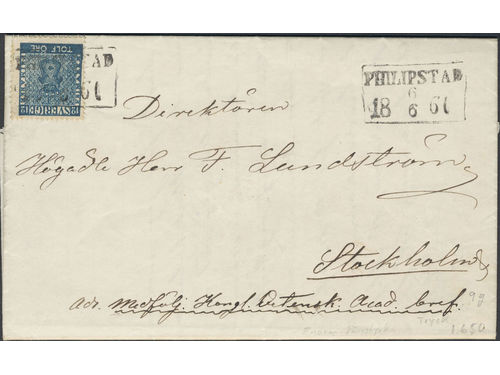 TOLF ÖRE
SVERIGE
PHILIPSTAD
6
18 6 61
Direktören
Högädle Herr F. Lundström,
Stockholm
Adr. Medfölj. Kongl. Vetensk. Acad. bref.
1.650